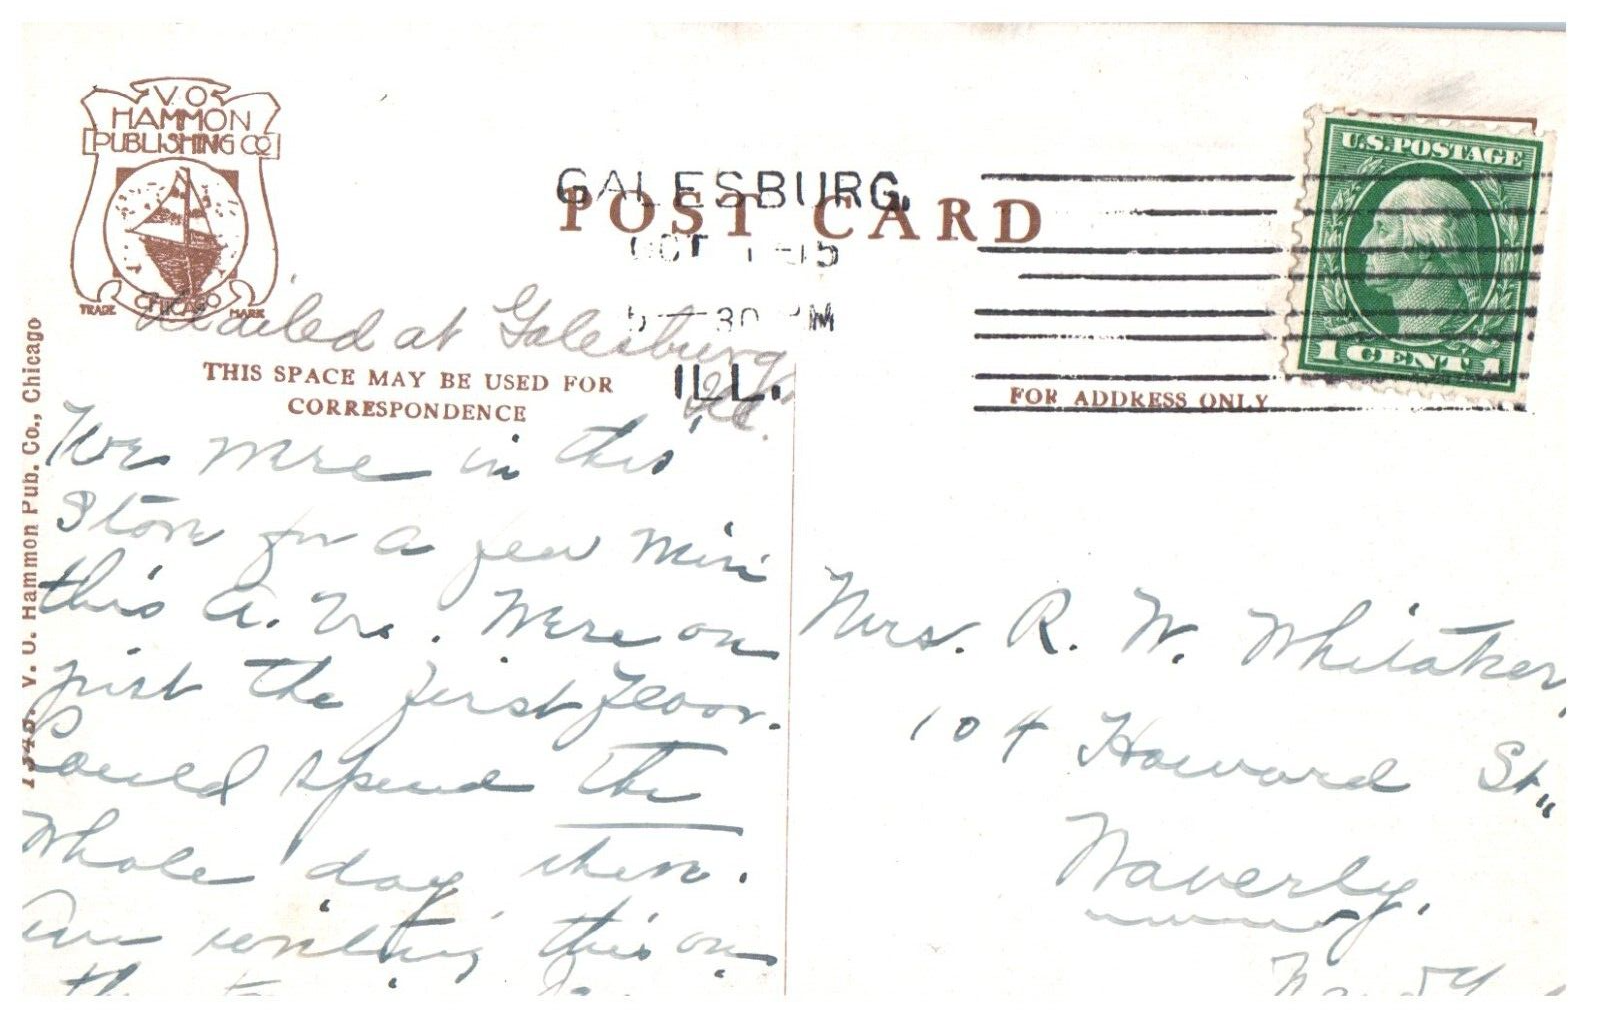 V O
HAMMON
PUBLISHING CO
CHICAGO
TRADE MARK
POST CARD
GALESBURG,
OCT 1 -15
5 30 PM
ILL.
U.S. POSTAGE
1 CENT 1
Mailed at Galesburg
Ill.
THIS SPACE MAY BE USED FOR
CORRESPONDENCE
FOR ADDRESS ONLY
V. O. Hammon Pub. Co., Chicago
We were in this
Store for a few min
this A. M. Were on
just the first floor.
Could spend the
whole day then.
Am writing this on
the
Mrs. R. W. Whitaker,
104 Howard St.,
Waverly,
N. Y.